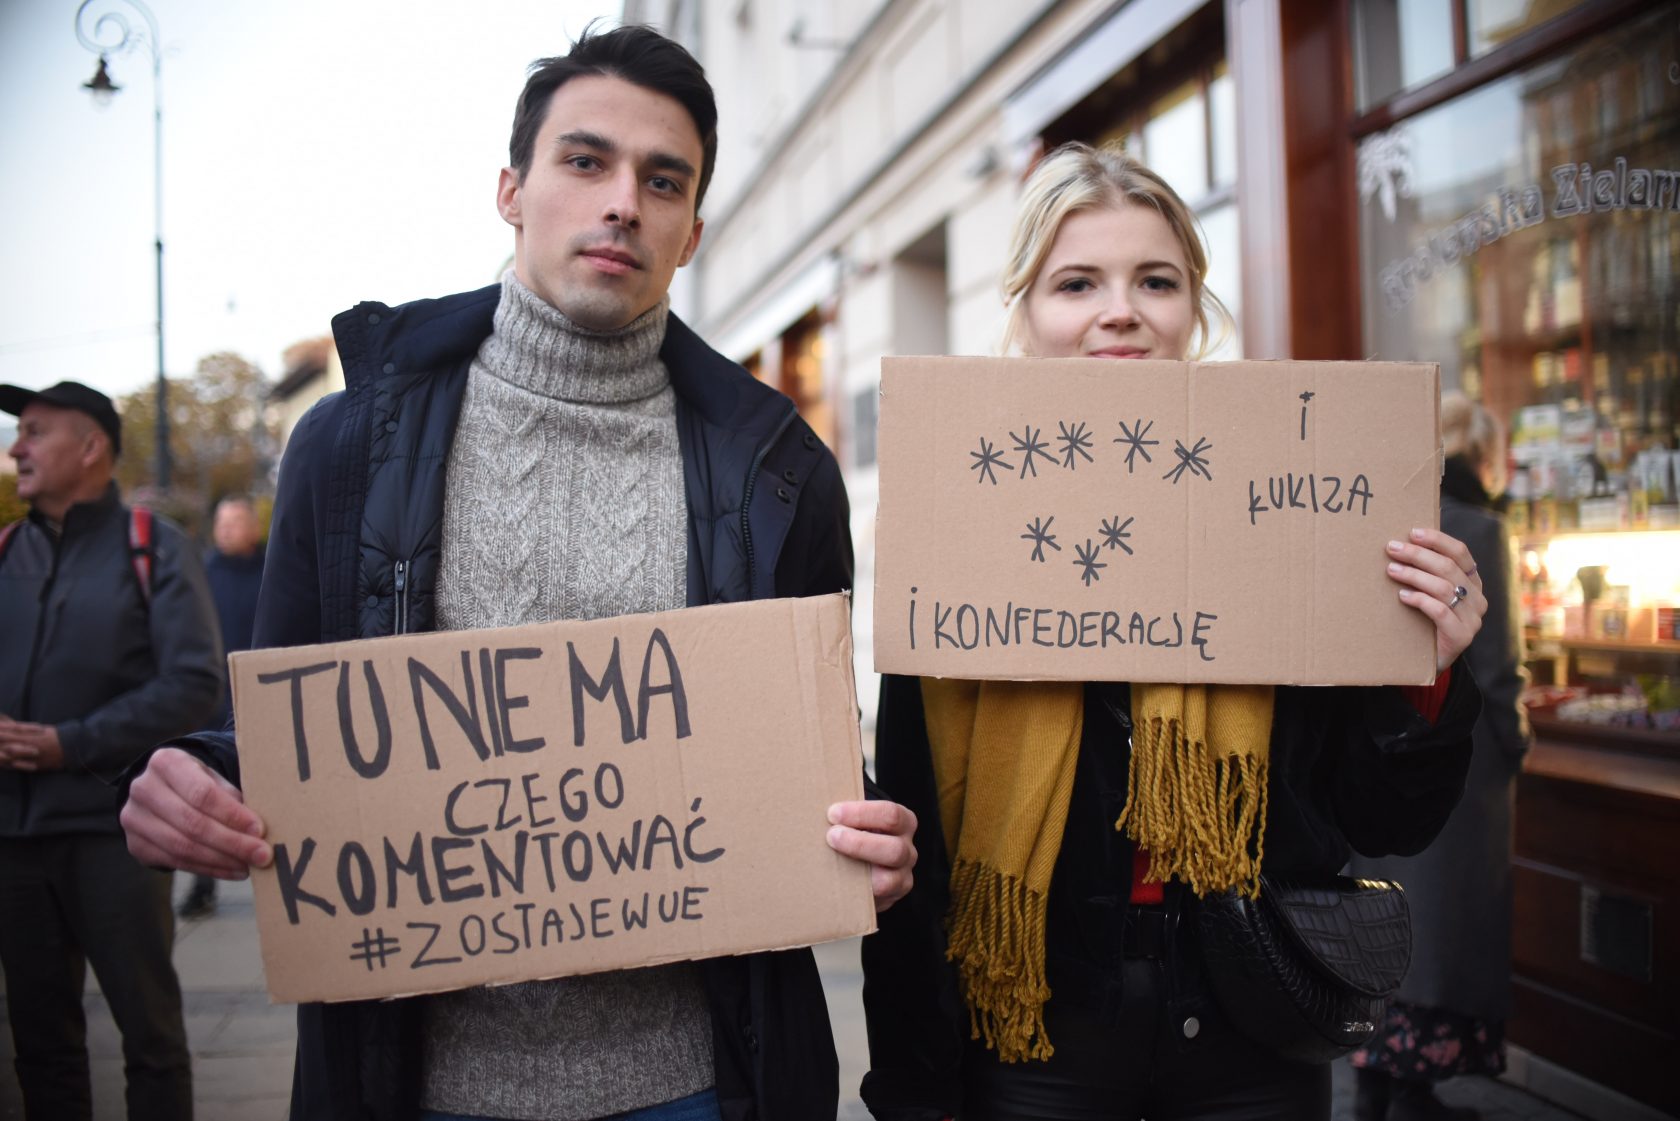 TU NIE MA
CZEGO
KOMENTOWAĆ
#ZOSTAJEWUE
***** i
KUKIZA
***
i KONFEDERACJĘ
Zielarn